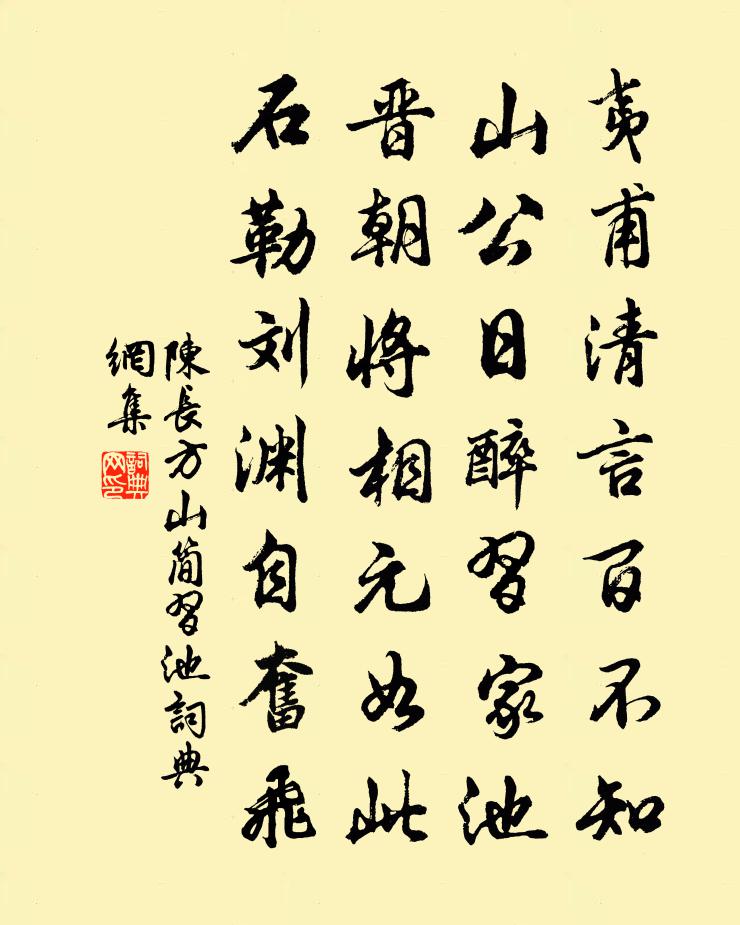 夷甫清言百不知
山公日醉習家池
晋朝將相元如此
石勒刘渊自奮飛
陳長方山简習池詞典
網集
詞典网印